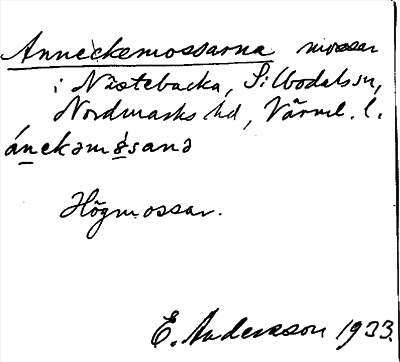 Anneckemossarna mossar
i Nästebacka, Silbodals sn,
Nordmarks hd, Värml. l.
ánekəmòsanə
Högmossar.
E. Andersson 1933.